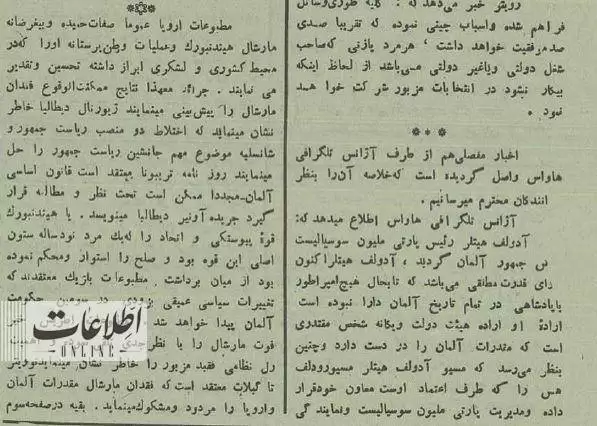 رویتر خبر می‌دهد که : کلیه طوری وسائل
فراهم شده واسباب چینی نموده که تقریبا صدی
صد مرفقیت خواهد داشت ، هرمرد یازنی که صاحب
شغل دولتی ویاغیر دولتی می‌باشد از لحاظ اینکه
بیکار نشود در انتخابات مزبور شرکت خوا هد
نمود .
* * *
اخبار مفصلی‌هم از طرف آژانس تلگرافی
هاواس واصل گردیده است که‌خلاصه آن‌را بنظر
انندگان محترم میرسانیم .
آژانس تلگرافی هاواس اطلاع میدهد که:
آدولف هیتلر رئیس پارتی ملیون سوسیالیست
س جمهور آلمان گردید ، آدولف هیتلر اکنون
رای قدرت مطلقی می‌باشد که تابحال هیچ‌امپراطور
یاپادشاهی در تمام تاریخ آلمان دارا نبوده است
ارادۀ او اراده هیئت دولت ویگانه شخص مقتدری
است که مقدرات آلمان را در دست دارد وچنین
بنظر می‌رسد که مسیو آدولف هیتلر مسیورودلف
هس را که طرف اعتماد اوست معاون خودقرار
داده ومدیریت پارتی ملیون سوسیالیست ونمایند گی
مطبوعات اروپا عموما صفات‌حمیده وبیغرضانه
مارشال هیندنبورك وعملیات وطن‌پرستانه اورا که‌در
محیط کشوری و لشگری ابراز داشته تحسین وتقدیر
می نمایند . جرائد معهذا نتایج ممکنت‌الوقوع فقدان
مارشال را پیش‌بینی مینمایند ژیورنال دیطالیا خاطر
نشان مینماید که اختلاط دو منصب ریاست جمهور و
شانسلیه موضوع مهم جانشین ریاست جمهور را حل
مینمایند روز نامه تریبونا معتقد است قانون اساسی
آلمان-مجددا ممکن است تحت نظر و مطالعه قرار
گیرد جریده آونیر دیطالیا مینویسد . با هیندنبورك
قوۀ پیوستگی و اتحاد را که‌یك مرد نودساله ستون
اصلی این قوه بود و صلح را استوار ومحکم نموده
بود از میان برداشت . مطبوعات بازیك معتقدند که
تغییرات سیاسی عمیقی بزودی در سومین حکومت
آلمان پیدا خواهد شد
فوت مارشال را با نظر
رل نظامی فقید مزبور را خاطر نشان مینماید
تاگبلات معتقد است که فقدان مارشال مقدرات آلمان
واروپا را مردود ومشکوك‌مینماید . بقیه درصفحه‌سوم
اطلاعات
ONLINE